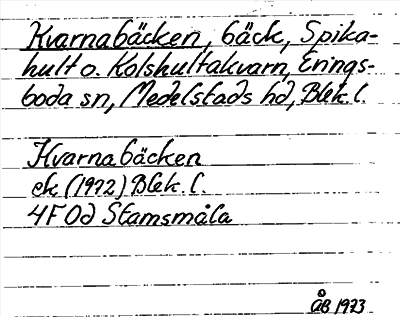 Kvarnabäcken, bäck, Spika-
hult o. Kolshultakvarn, Erings-
boda sn, Medelstads hd, Blek. l.
Kvarnabäcken
ek (1972) Blek. l.
4F 0d Stamsmåla
ÅB 1973